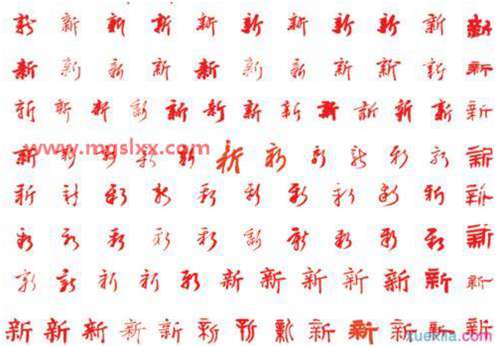 新新新新新新新新新新新
新新新新新新新新新新新
新新新新新新新新新新新新新
www.mgslxx.com
新新新新新新新新新新新新
新新新新新新新新新新新
新新新新新新新新新新新
新新新新新新新新新新新新
新新新新新新新新新新新新新
xuexila.com